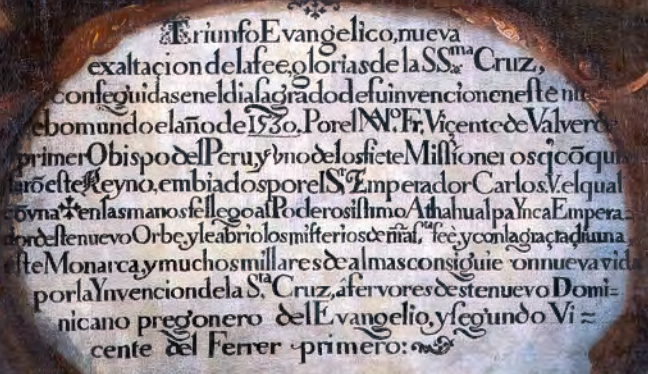 Triunfo Evangelico, nueva
exaltaçion de la fee, glorias de la SS.ma Cruz,
conseguidas en el dia sagrado de su invencion en este nu
ebo mundo el año de 1530. Por el Fr. Viçente de Valverde
primer Obispo del Peru, y vno de los siete Missioneros q̃ cõqui
tarõ este Reyno, embiados por el S.r Emperador Carlos.V. el qual
cõ vna ✝ en las manos se llego al Poderosissimo Athahualpa Ynca Empera=
dor deste nuevo Orbe, y le abrio los misterios de s.ta feè, y con la graç diuina,
este Monarca, y muchos millares de almas consiguie on nueva vida
por la Ynvencion de la S.ta Cruz, a fervores deste nuevo Domi=
nicano pregonero del Evangelio, y segundo Vi=
cente del Ferrer primero: